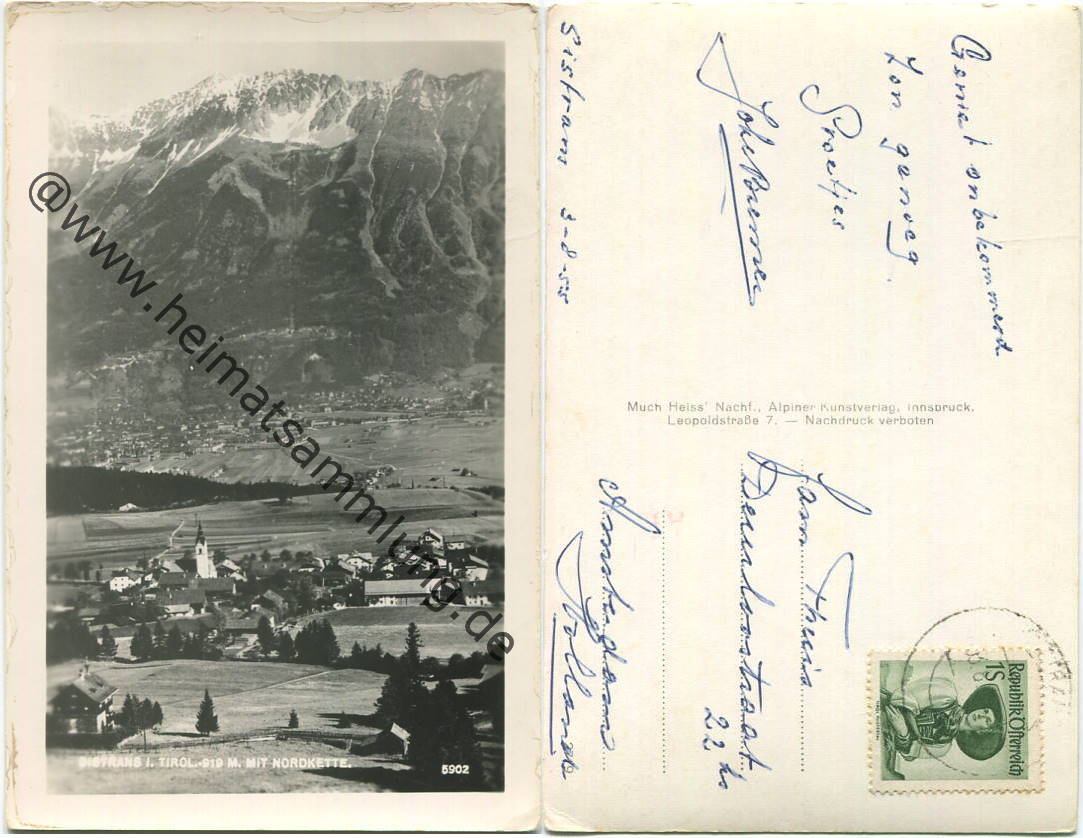 SISTRANS I. TIROL.-919 M. MIT NORDKETTE.
5902
@www.heimatsammlung.de
Sistrans 3-8-55
Geniet onbekommerd
Zon genoeg.
Groetjes
Much Heiss' Nachf., Alpiner Kunstverlag, Innsbruck.
Leopoldstraße 7. — Nachdruck verboten
Fam Theis
Deurloostraat
22 hs
Amsterdam
Holland
1S
Republik Österreich